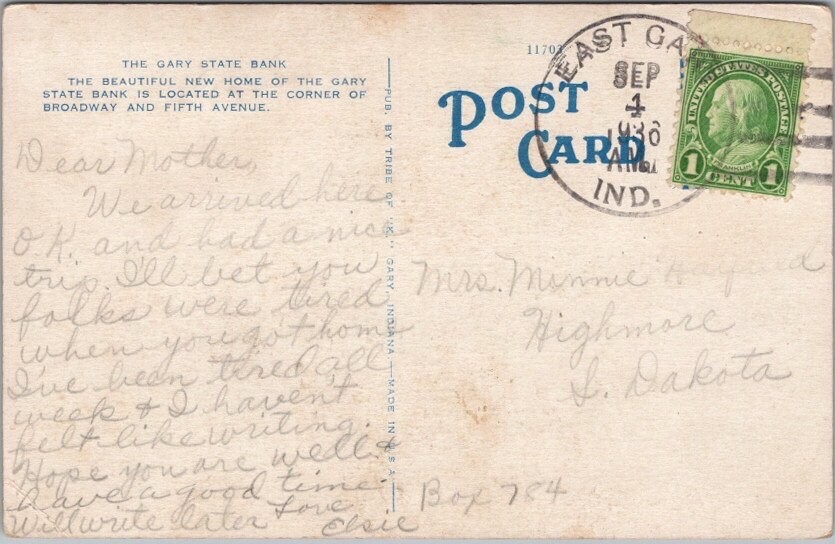 THE GARY STATE BANK
THE BEAUTIFUL NEW HOME OF THE GARY
STATE BANK IS LOCATED AT THE CORNER OF
BROADWAY AND FIFTH AVENUE.
Dear Mother,
We arrived here
O.K. and had a nice
trip. I'll bet you
folks were tired
when you got home
I've been tired all
week & I haven't
felt like writing.
Hope you are well &
have a good time.
Will write later Love
Elsie
PUB. BY TRIBE OF "K," GARY, INDIANA — MADE IN U.S.A.
POST
CARD
EAST
SEP
1
1936
AM
IND.
UNITED STATES POSTAGE
FRANKLIN
1 CENT 1
Mrs. Minnie
Highmore
S. Dakota
Box 784